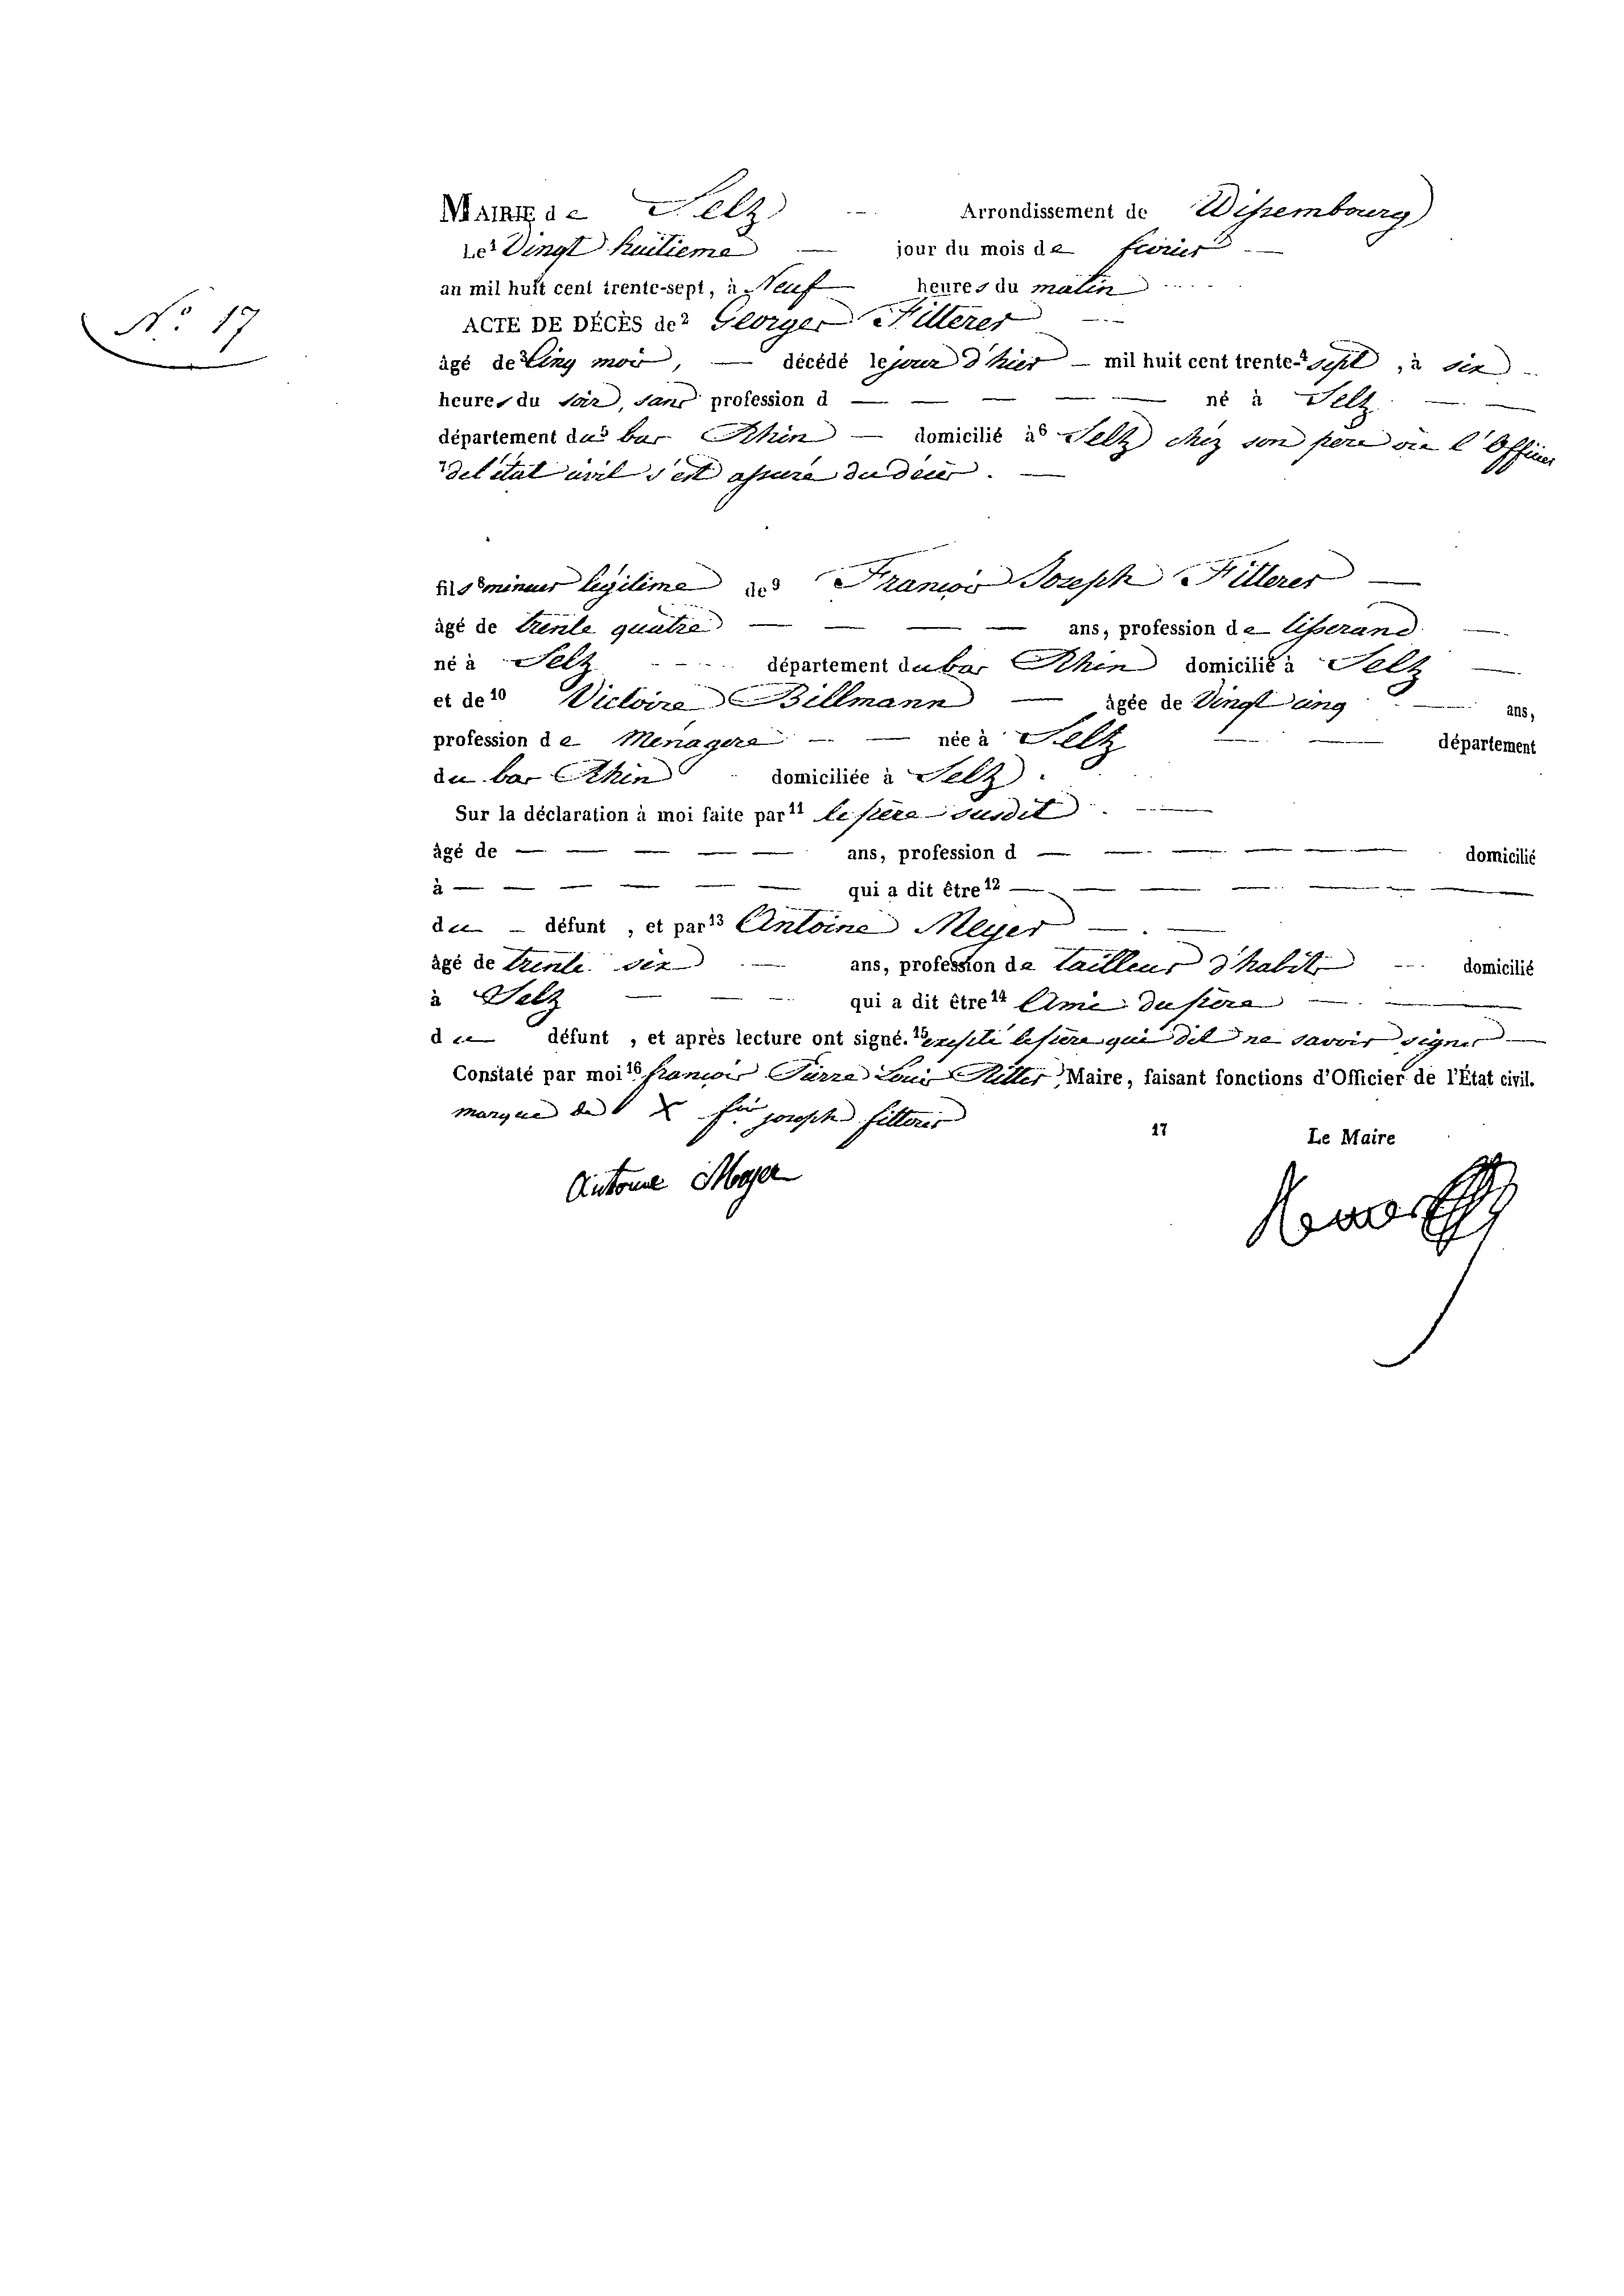 MAIRIE de Selz Arrondissement de Wissembourg
Le¹ Vingt huitieme jour du mois de fevrier
an mil huit cent trente-sept, à Neuf heures du matin
N.° 17
ACTE DE DÉCÈS de² Georges Fitterer
âgé de³ Cinq mois, décédé le jour d'hier mil huit cent trente-⁴ sept, à six
heures du soir, sans profession d né à Seltz
département du⁵ bas Rhin domicilié à⁶ Seltz chez son pere ou l'Officier
⁷ del'état civil s'est assuré du décès.
fils⁸ mineur légitime de⁹ François Joseph Fitterer
âgé de trente quatre ans, profession de tisserand
né à Seltz département du bas Rhin domicilié à Seltz
et de¹⁰ Victoire Billmann âgée de Vingt cinq ans,
profession de Menagere née à Seltz département
du bas Rhin domiciliée à Seltz.
Sur la déclaration à moi faite par¹¹ le père susdit
âgé de ans, profession d domicilié
à qui a dit être¹²
du défunt, et par¹³ Antoine Meyer
âgé de trente six ans, profession de tailleur d'habits domicilié
à Selz qui a dit être¹⁴ Ami du père
du défunt, et après lecture ont signé.¹⁵ excepté le père qui dit ne savoir signer
Constaté par moi¹⁶ françois Pierre Louis Maire, faisant fonctions d'Officier de l'État civil.
marque de X joseph fitterer
17 Le Maire
Antoine Meyer